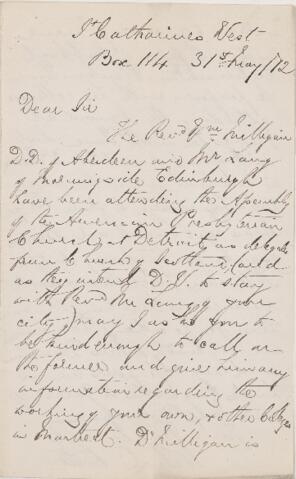 St Catharines West
Box 114 31st May /72
Dear Sir
The Revd Wm Milligan
D.D. of Aberdeen and Mr Lang
of Morningside Edinburgh
have been attending the Assembly
of the American Presbyterian
Church at Detroit as delegates
from Church of Scotland (and
as they intend D.V. to stay
with Revd Mr of your
city) may I ask you to
be kind enough to call on
the former and give him any
information regarding the
working of your own, & other Colleges
in Montreal. Dr Milligan is